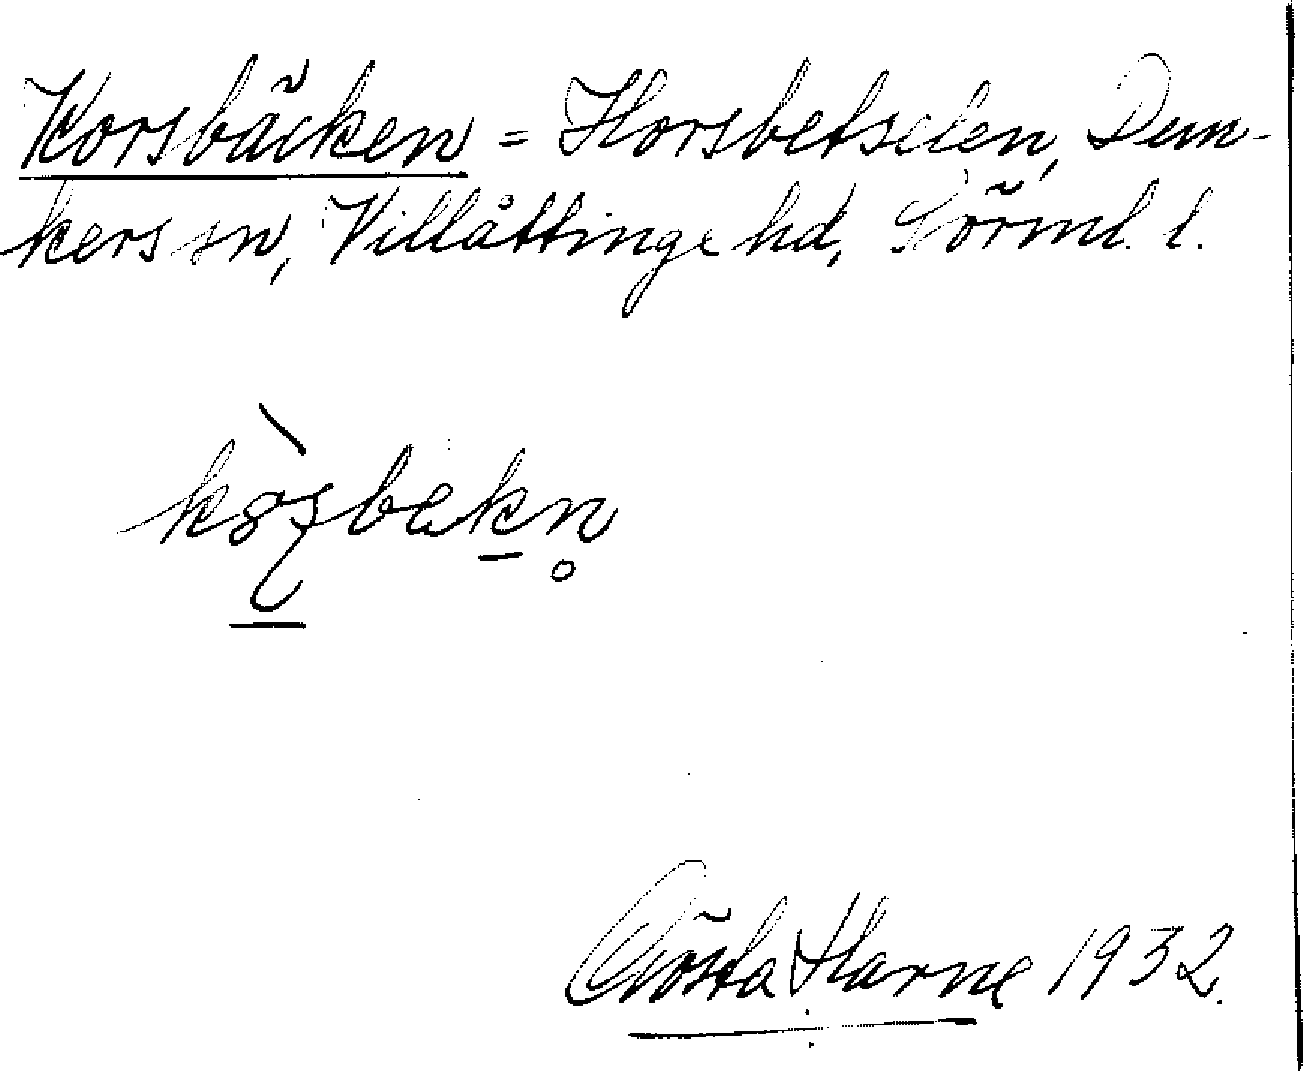 Korsbäcken = Horsbetselen, Dun-
kers sn, Villåttinge hd, Sörml. l.
Gösta Harne 1932.